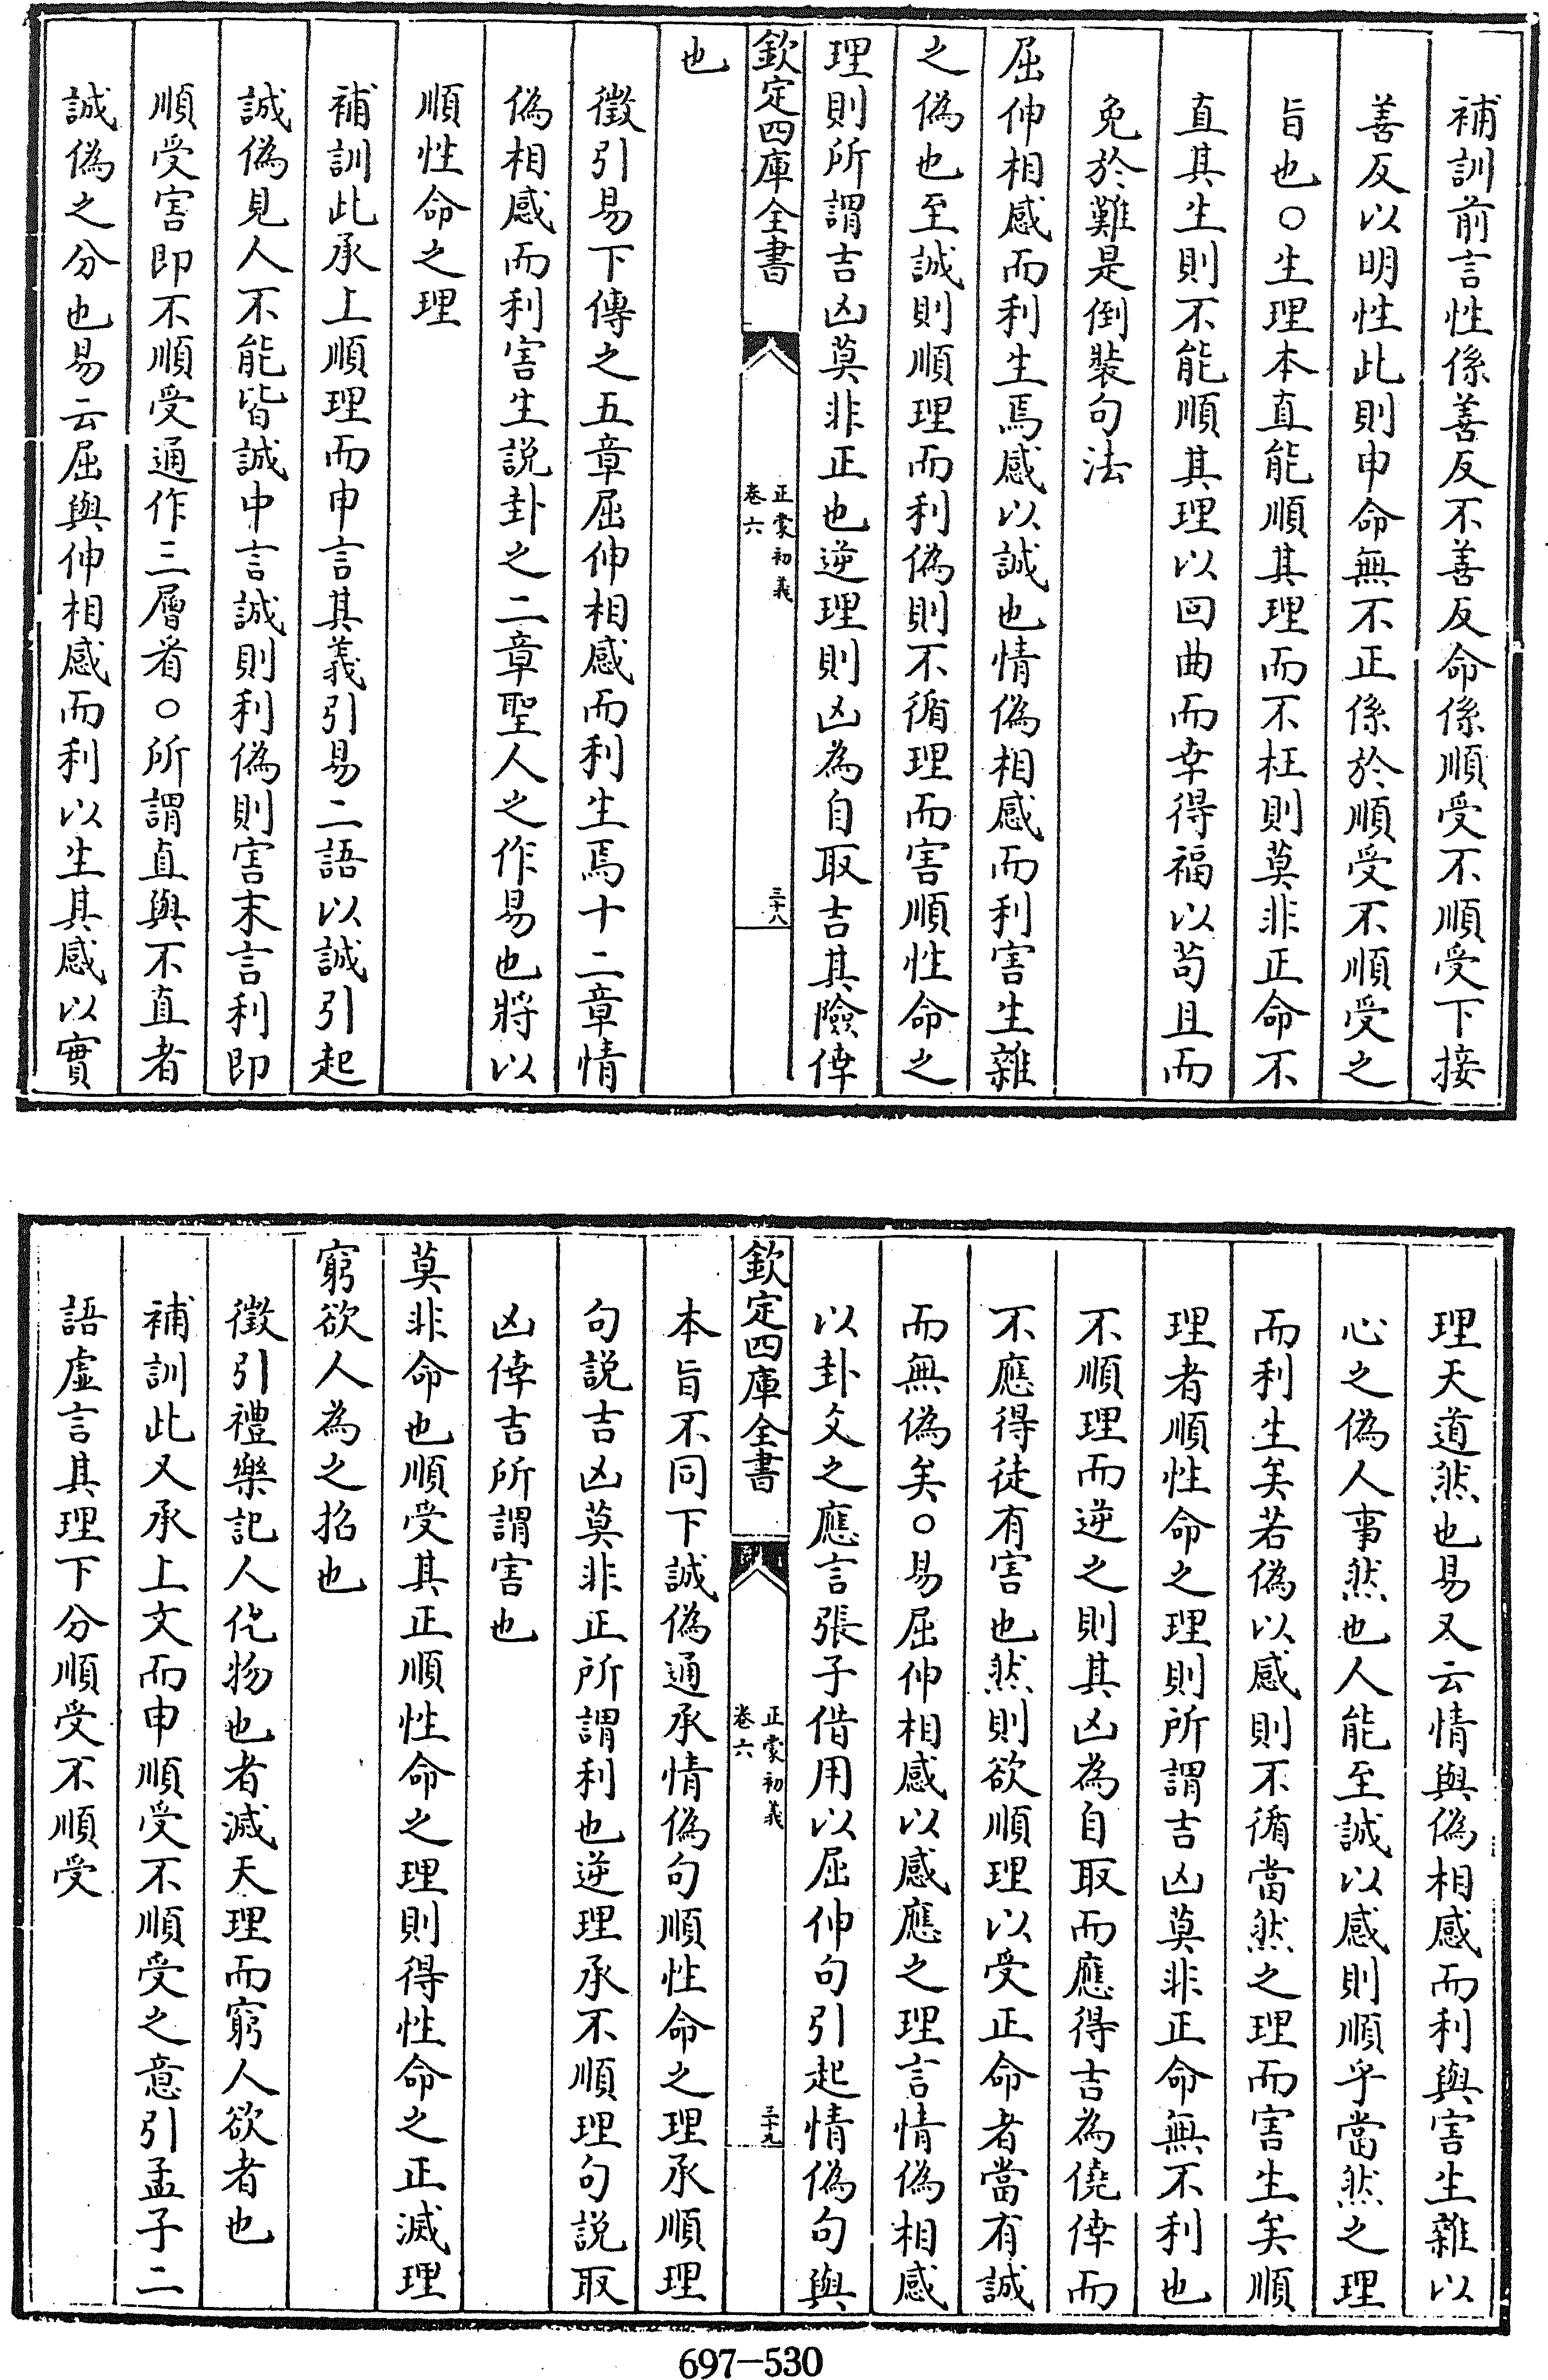 補訓前言性係善反不善反命係順受不順受下接
善反以明性此則申命無不正係於順受不順受之
旨也○生理本直能順其理而不枉則莫非正命不
直其生則不能順其理以回曲而幸得福以苟且而
免於難是倒裝句法
屈伸相感而利生焉感以誠也情偽相感而利害生雜
之偽也至誠則順理而利偽則不循理而害順性命之
理則所謂吉凶莫非正也逆理則凶為自取吉其險倖
欽定四庫全書
正蒙初義
卷六
三十八
也
徵引易下傳之五章屈伸相感而利生焉十二章情
偽相感而利害生説卦之二章聖人之作易也將以
順性命之理
補訓此承上順理而申言其義引易二語以誠引起
誠偽見人不能皆誠中言誠則利偽則害末言利即
順受害即不順受通作三層看○所謂直與不直者
誠偽之分也易云屈與伸相感而利以生其感以實
理天道然也易又云情與偽相感而利與害生雜以
心之偽人事然也人能至誠以感則順乎當然之理
而利生矣若偽以感則不循當然之理而害生矣順
理者順性命之理則所謂吉凶莫非正命無不利也
不順理而逆之則其凶為自取而應得吉為僥倖而
不應得徒有害也然則欲順理以受正命者當有誠
而無偽矣○易屈伸相感以感應之理言情偽相感
以卦爻之應言張子借用以屈伸句引起情偽句與
欽定四庫全書
正蒙初義
卷六
三十九
本旨不同下誠偽通承情偽句順性命之理承順理
句説吉凶莫非正所謂利也逆理承不順理句説取
凶倖吉所謂害也
莫非命也順受其正順性命之理則得性命之正滅理
窮欲人為之招也
徵引禮樂記人化物也者滅天理而窮人欲者也
補訓此又承上文而申順受不順受之意引孟子二
語虛言其理下分順受不順受
697-530